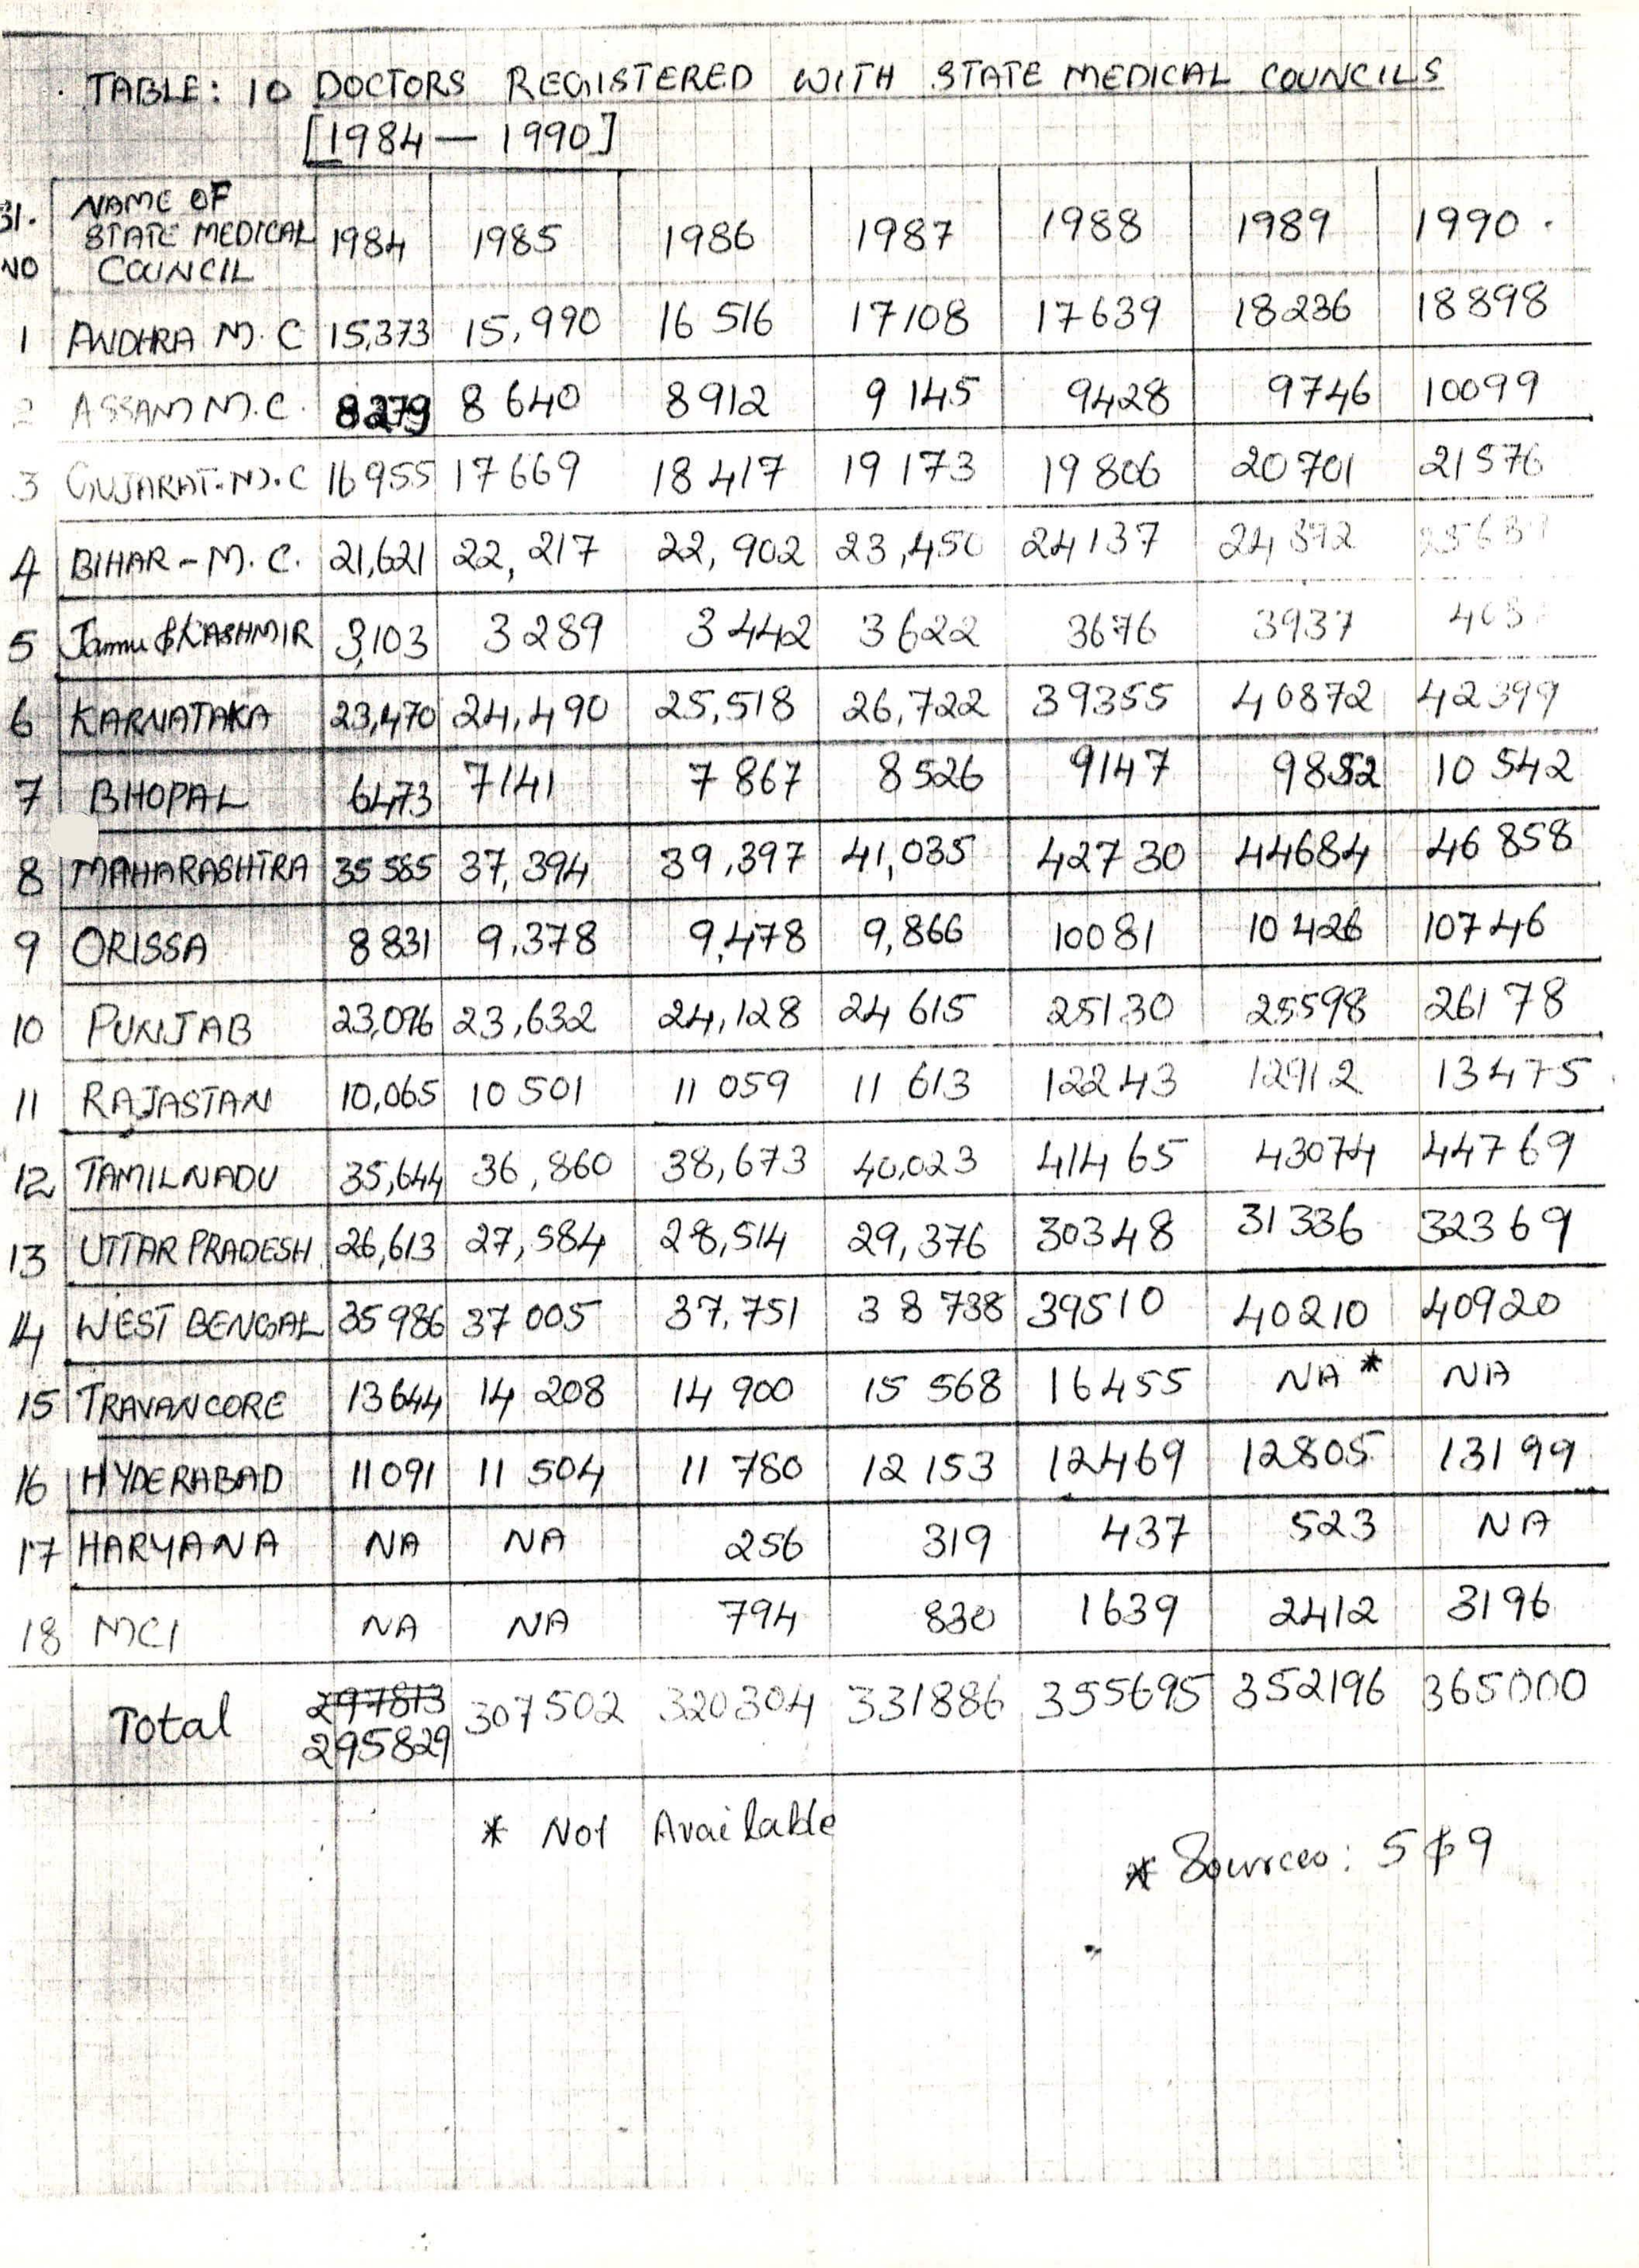 TABLE: 10 DOCTORS REGISTERED WITH STATE MEDICAL COUNCILS
[1984 — 1990]
Sl. NO NAME OF STATE MEDICAL COUNCIL 1984 1985 1986 1987 1988 1989 1990
1 ANDHRA M.C 15,373 15,990 16 516 17108 17639 18236 18898
2 ASSAM M.C. 8279 8 640 8912 9 145 9428 9746 10099
3 GUJARAT.M.C 16955 17669 18 417 19 173 19 806 20701 21576
4 BIHAR - M.C. 21,621 22, 217 22, 902 23,450 24137
5 Jammu & KASHMIR 3,103 3289 3442 3622 3676 3937
6 KARNATAKA 23,470 24,490 25,518 26,722 39355 40872 42399
7 BHOPAL 6473 7141 7 867 8 526 9147 9852 10 542
8 MAHARASHTRA 35 585 37,394 39,397 41,035 42730 44684 46 858
9 ORISSA 8 831 9,378 9,478 9,866 10081 10426 10746
10 PUNJAB 23,096 23,632 24,128 24 615 25130 25598 26178
11 RAJASTAN 10,065 10 501 11 059 11 613 12243 12912 13475
12 TAMILNADU 35,644 36,860 38,673 40,023 41465 43074 44769
13 UTTAR PRADESH 26,613 27,584 28,514 29,376 30348 31336 32369
14 WEST BENGAL 35986 37 005 37,751 38 738 39510 40210 40920
15 TRAVANCORE 13644 14 208 14 900 15 568 16455 NA* NA
16 HYDERABAD 11091 11 504 11 780 12 153 12469 12805 13199
17 HARYANA NA NA 256 319 437 523 NA
18 MCI NA NA 794 830 1639 2412 3196
Total 297813 295829 307502 320304 331886 355695 352196 365000
* Not Available
* Sources: 5 & 9